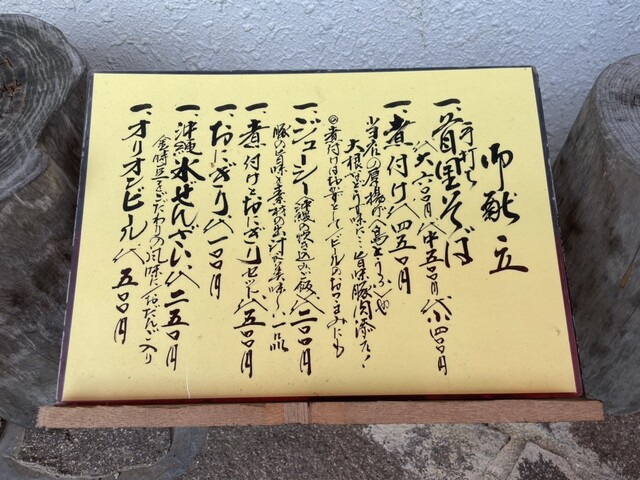 御献立
一、手打ち首里そば
代 大六〇〇円 代 中五〇〇円 代 小四〇〇円
一、煮付け 代四五〇円
当店の厚揚げ(島どうふ)や
大根、ぼう味だ… 旨味豚肉添え!
◎煮付けはおかずとして、ビールのおつまみにも
一、ジューシー 沖縄の炊き込みご飯 代二〇〇円
豚の旨味と素材の出汁が美味〜い一品
一、煮付けとおにぎりセット 代五〇〇円
一、おにぎり 代一〇〇円
一、沖縄氷ぜんざい 代二五〇円
金時豆 こだわりの風味だ おだんご入り
一、オリオンビール 代五〇〇円